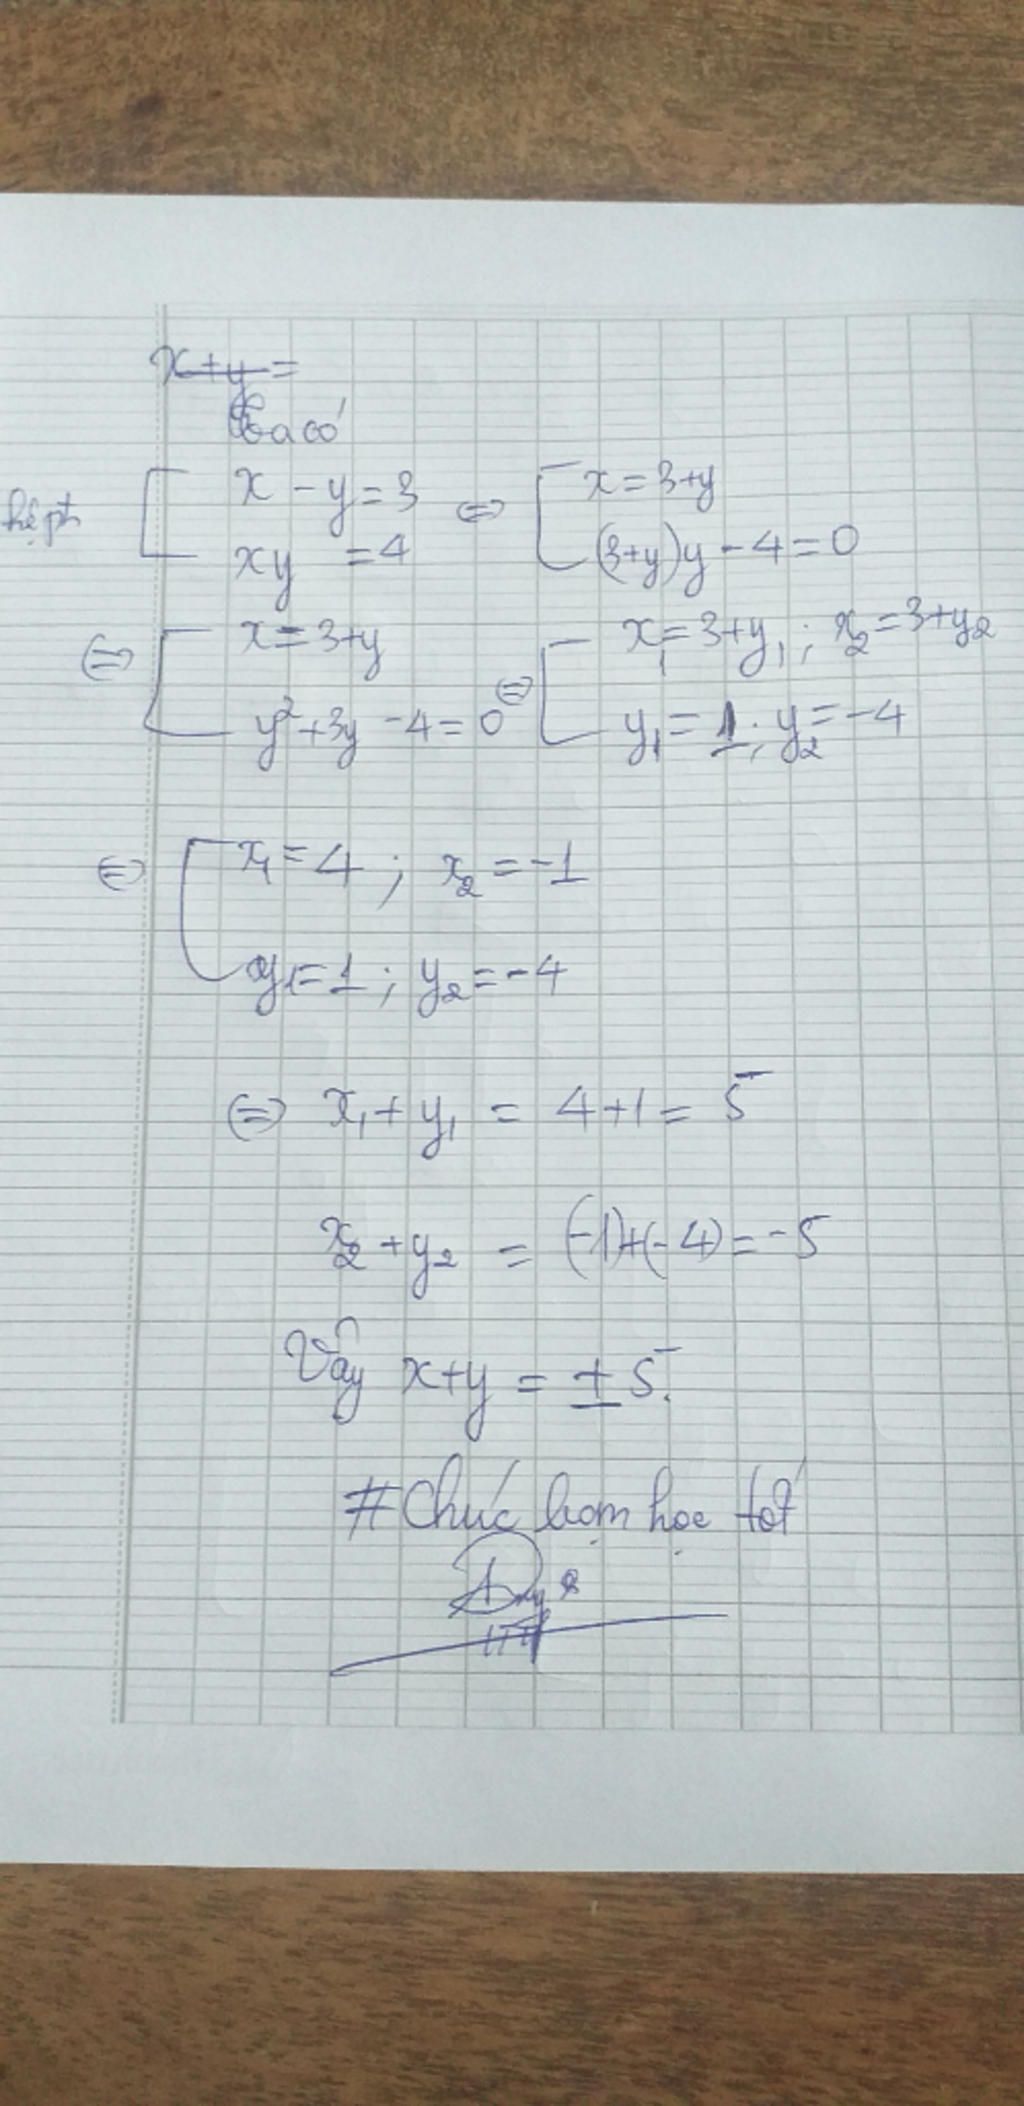 x+y=
Ta có
hệ pt x - y = 3 <=> x = 3+y
xy = 4 (3+y)y - 4 = 0
<=> x = 3+y <=> x₁ = 3+y₁ ; x₂ = 3+y₂
y² + 3y - 4 = 0 y₁ = 1 ; y₂ = -4
<=> x₁ = 4 ; x₂ = -1
y₁ = 1 ; y₂ = -4
<=> x₁ + y₁ = 4+1 = 5
x₂ + y₂ = (-1)+(-4) = -5
Vậy x+y = ± 5.
# Chúc bạn học tốt